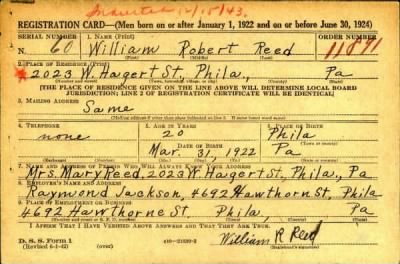 Inducted 12/18/43,
REGISTRATION CARD—(Men born on or after January 1, 1922 and on or before June 30, 1924)
SERIAL NUMBER 1. NAME (Print) ORDER NUMBER
60 William Robert Reed 11891
(First) (Middle) (Last)
2. PLACE OF RESIDENCE (Print)
2023 W. Hagert St. Phila., Pa
[THE PLACE OF RESIDENCE GIVEN ON THE LINE ABOVE WILL DETERMINE LOCAL BOARD
JURISDICTION; LINE 2 OF REGISTRATION CERTIFICATE WILL BE IDENTICAL]
3. MAILING ADDRESS
Same
4. TELEPHONE 5. AGE IN YEARS 6. PLACE OF BIRTH
none 20 Phila
DATE OF BIRTH
Mar. 31, 1922 Pa
7. NAME AND ADDRESS OF PERSON WHO WILL ALWAYS KNOW YOUR ADDRESS
Mrs. Mary Reed, 2023 W. Hagert St., Phila., Pa
8. EMPLOYER'S NAME AND ADDRESS
Raymond Jackson, 4692 Hawthorn St, Phila
9. PLACE OF EMPLOYMENT OR BUSINESS
4692 Hawthorne St. Phila, Pa
I AFFIRM THAT I HAVE VERIFIED ABOVE ANSWERS AND THAT THEY ARE TRUE.
D. S. S. Form 1
(Revised 6-1-42)
William R Reed
(Registrant's signature)